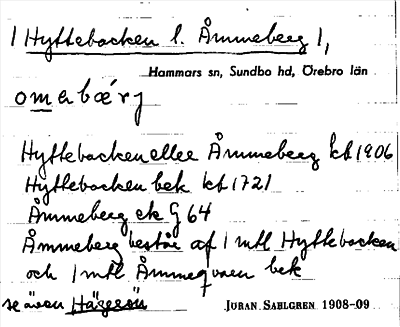 1 Hyttebacken l. Åmmeberg 1,
Hammars sn, Sundbo hd, Örebro län
oməbærj
Hyttebacken eller Åmmeberg kb 1906
Hyttebacken bek kb 1721
Åmmeberg ek G 64
Åmmeberg består af 1 mtl Hyttebacken
och 1 mtl Åmmeqvarn bek
se även Hägersön
JÖRAN SAHLGREN 1908-09